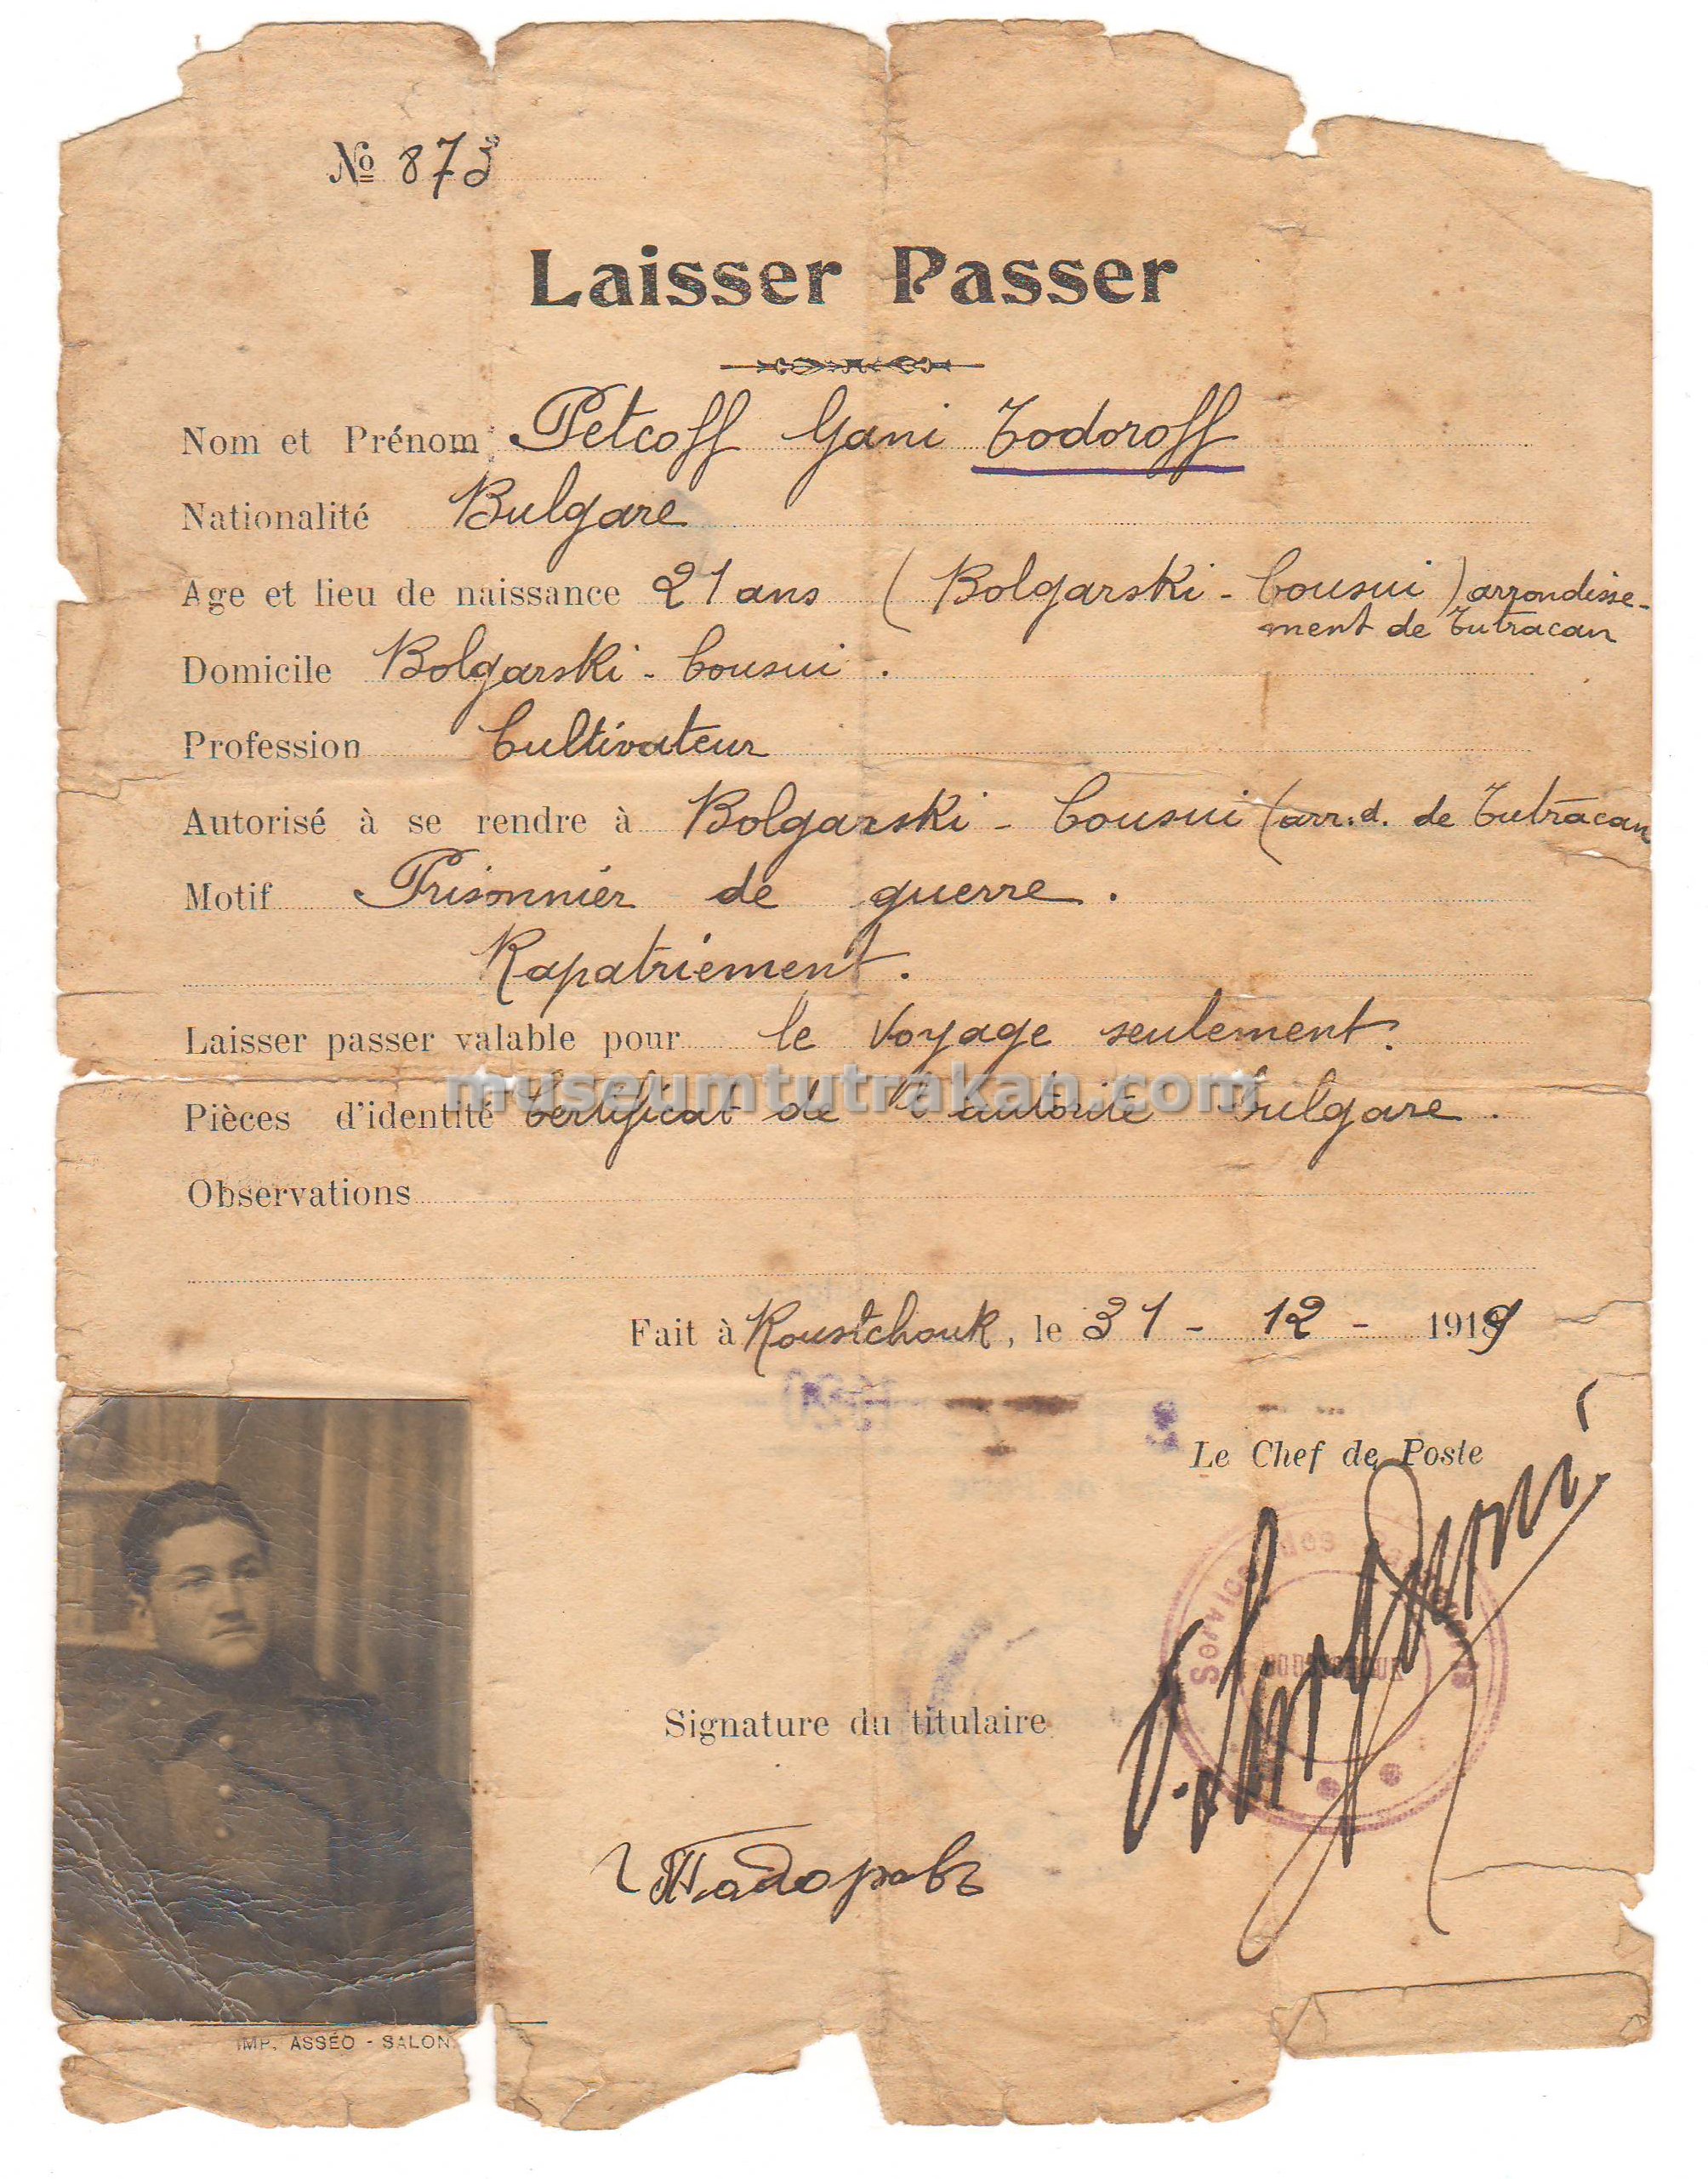 № 873
Laisser Passer
Nom et Prénom Petcoff Gani Todoroff
Nationalité Bulgare
Age et lieu de naissance 21 ans (Bolgarski - Cousui) arrondisse-
ment de Tutracan
Domicile Bolgarski - Cousui.
Profession Cultivateur
Autorisé à se rendre à Bolgarski - Cousui (arr.d. de Tutracan
Motif Prisonnier de guerre.
Rapatriement.
Laisser passer valable pour le voyage seulement.
museumtutrakan.com
Pièces d'identité Certificat de l'autorité bulgare.
Observations
Fait à Roustchouk, le 31 - 12 - 1919
Le Chef de Poste
Service des
Signature du titulaire
IMP. ASSÉO - SALON